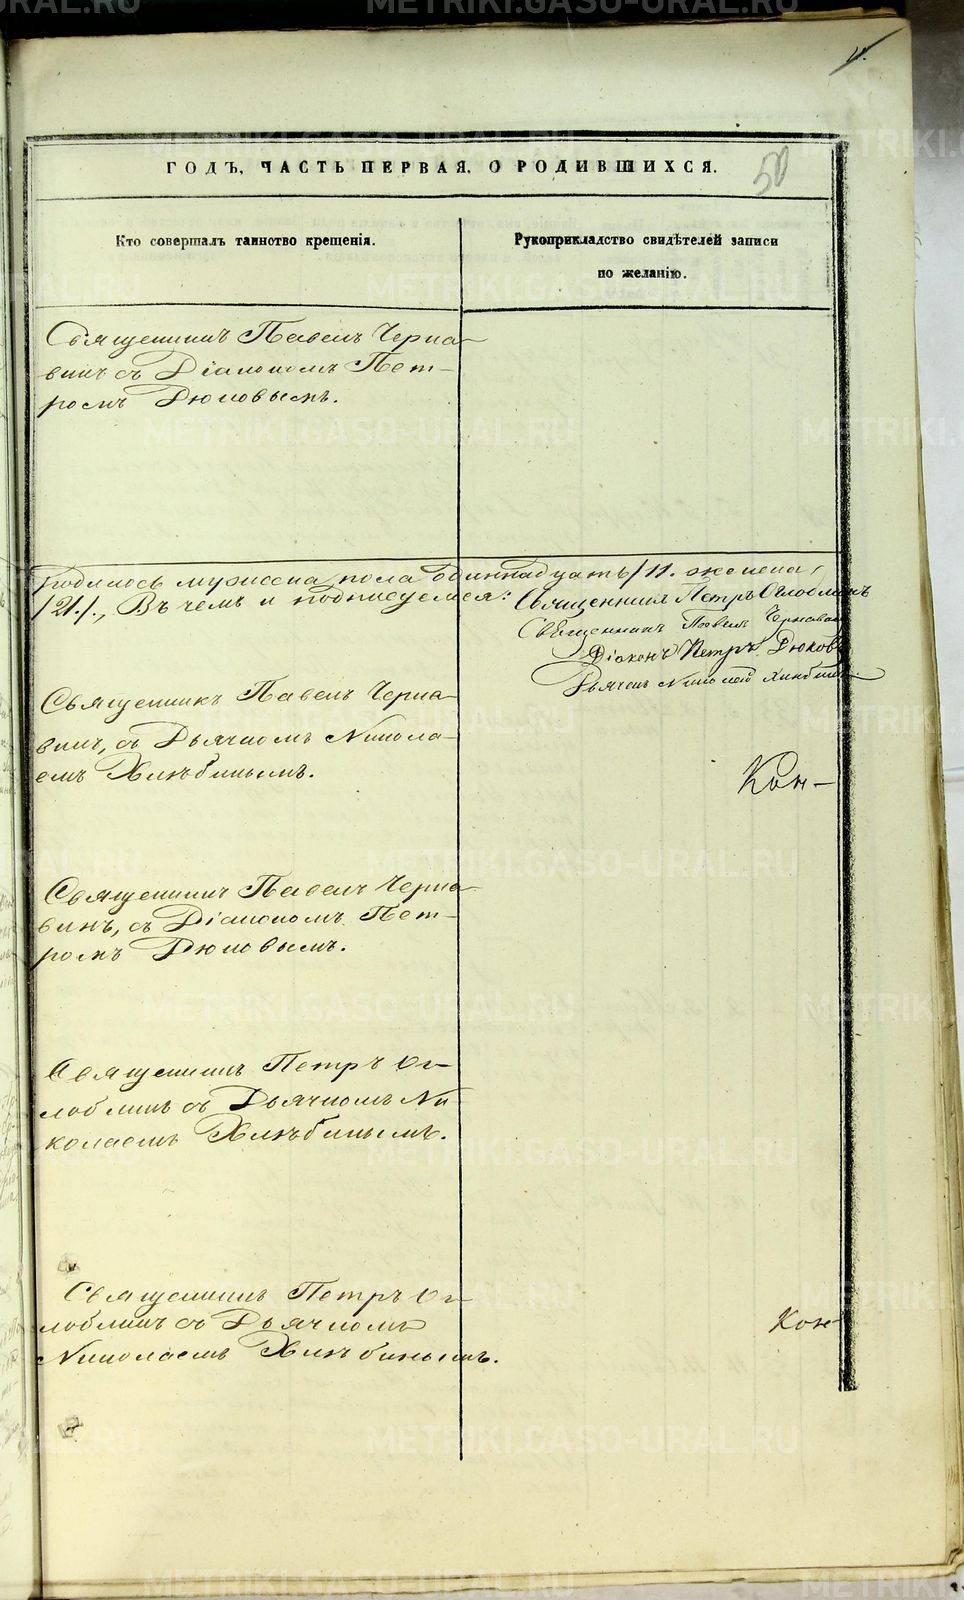 ГОДЪ, ЧАСТЬ ПЕРВАЯ, О РОДИВШИХСЯ.
50
Кто совершалъ таинство крещенія.
Рукоприкладство свидѣтелей записи
по желанію.
Священникъ Павелъ Черна-
винъ съ Діакономъ Пет-
ромъ Дюковымъ.
родилось мужеска пола одиннадцать /11. женска /
/21./, Въ чемъ и подписуемся:
Священникъ Петръ Оглоблинъ
Священникъ Павелъ Чернавинъ
Діаконъ Петръ Дюковъ
Дьячекъ Николай Хлѣбинъ.
Священникъ Павелъ Черна-
винъ, съ Дьячкомъ Никола-
емъ Хлѣбинымъ.
Кон-
Священникъ Павелъ Черна-
винъ, съ Діакономъ Пет-
ромъ Дюковымъ.
Священникъ Петръ Ог-
лоблинъ съ Дьячкомъ Ни-
колаемъ Хлѣбинымъ.
Священникъ Петръ Ог-
лоблинъ съ Дьячкомъ
Николаемъ Хлѣбинымъ.
Кон-
METRIKI.GASO-URAL.RU